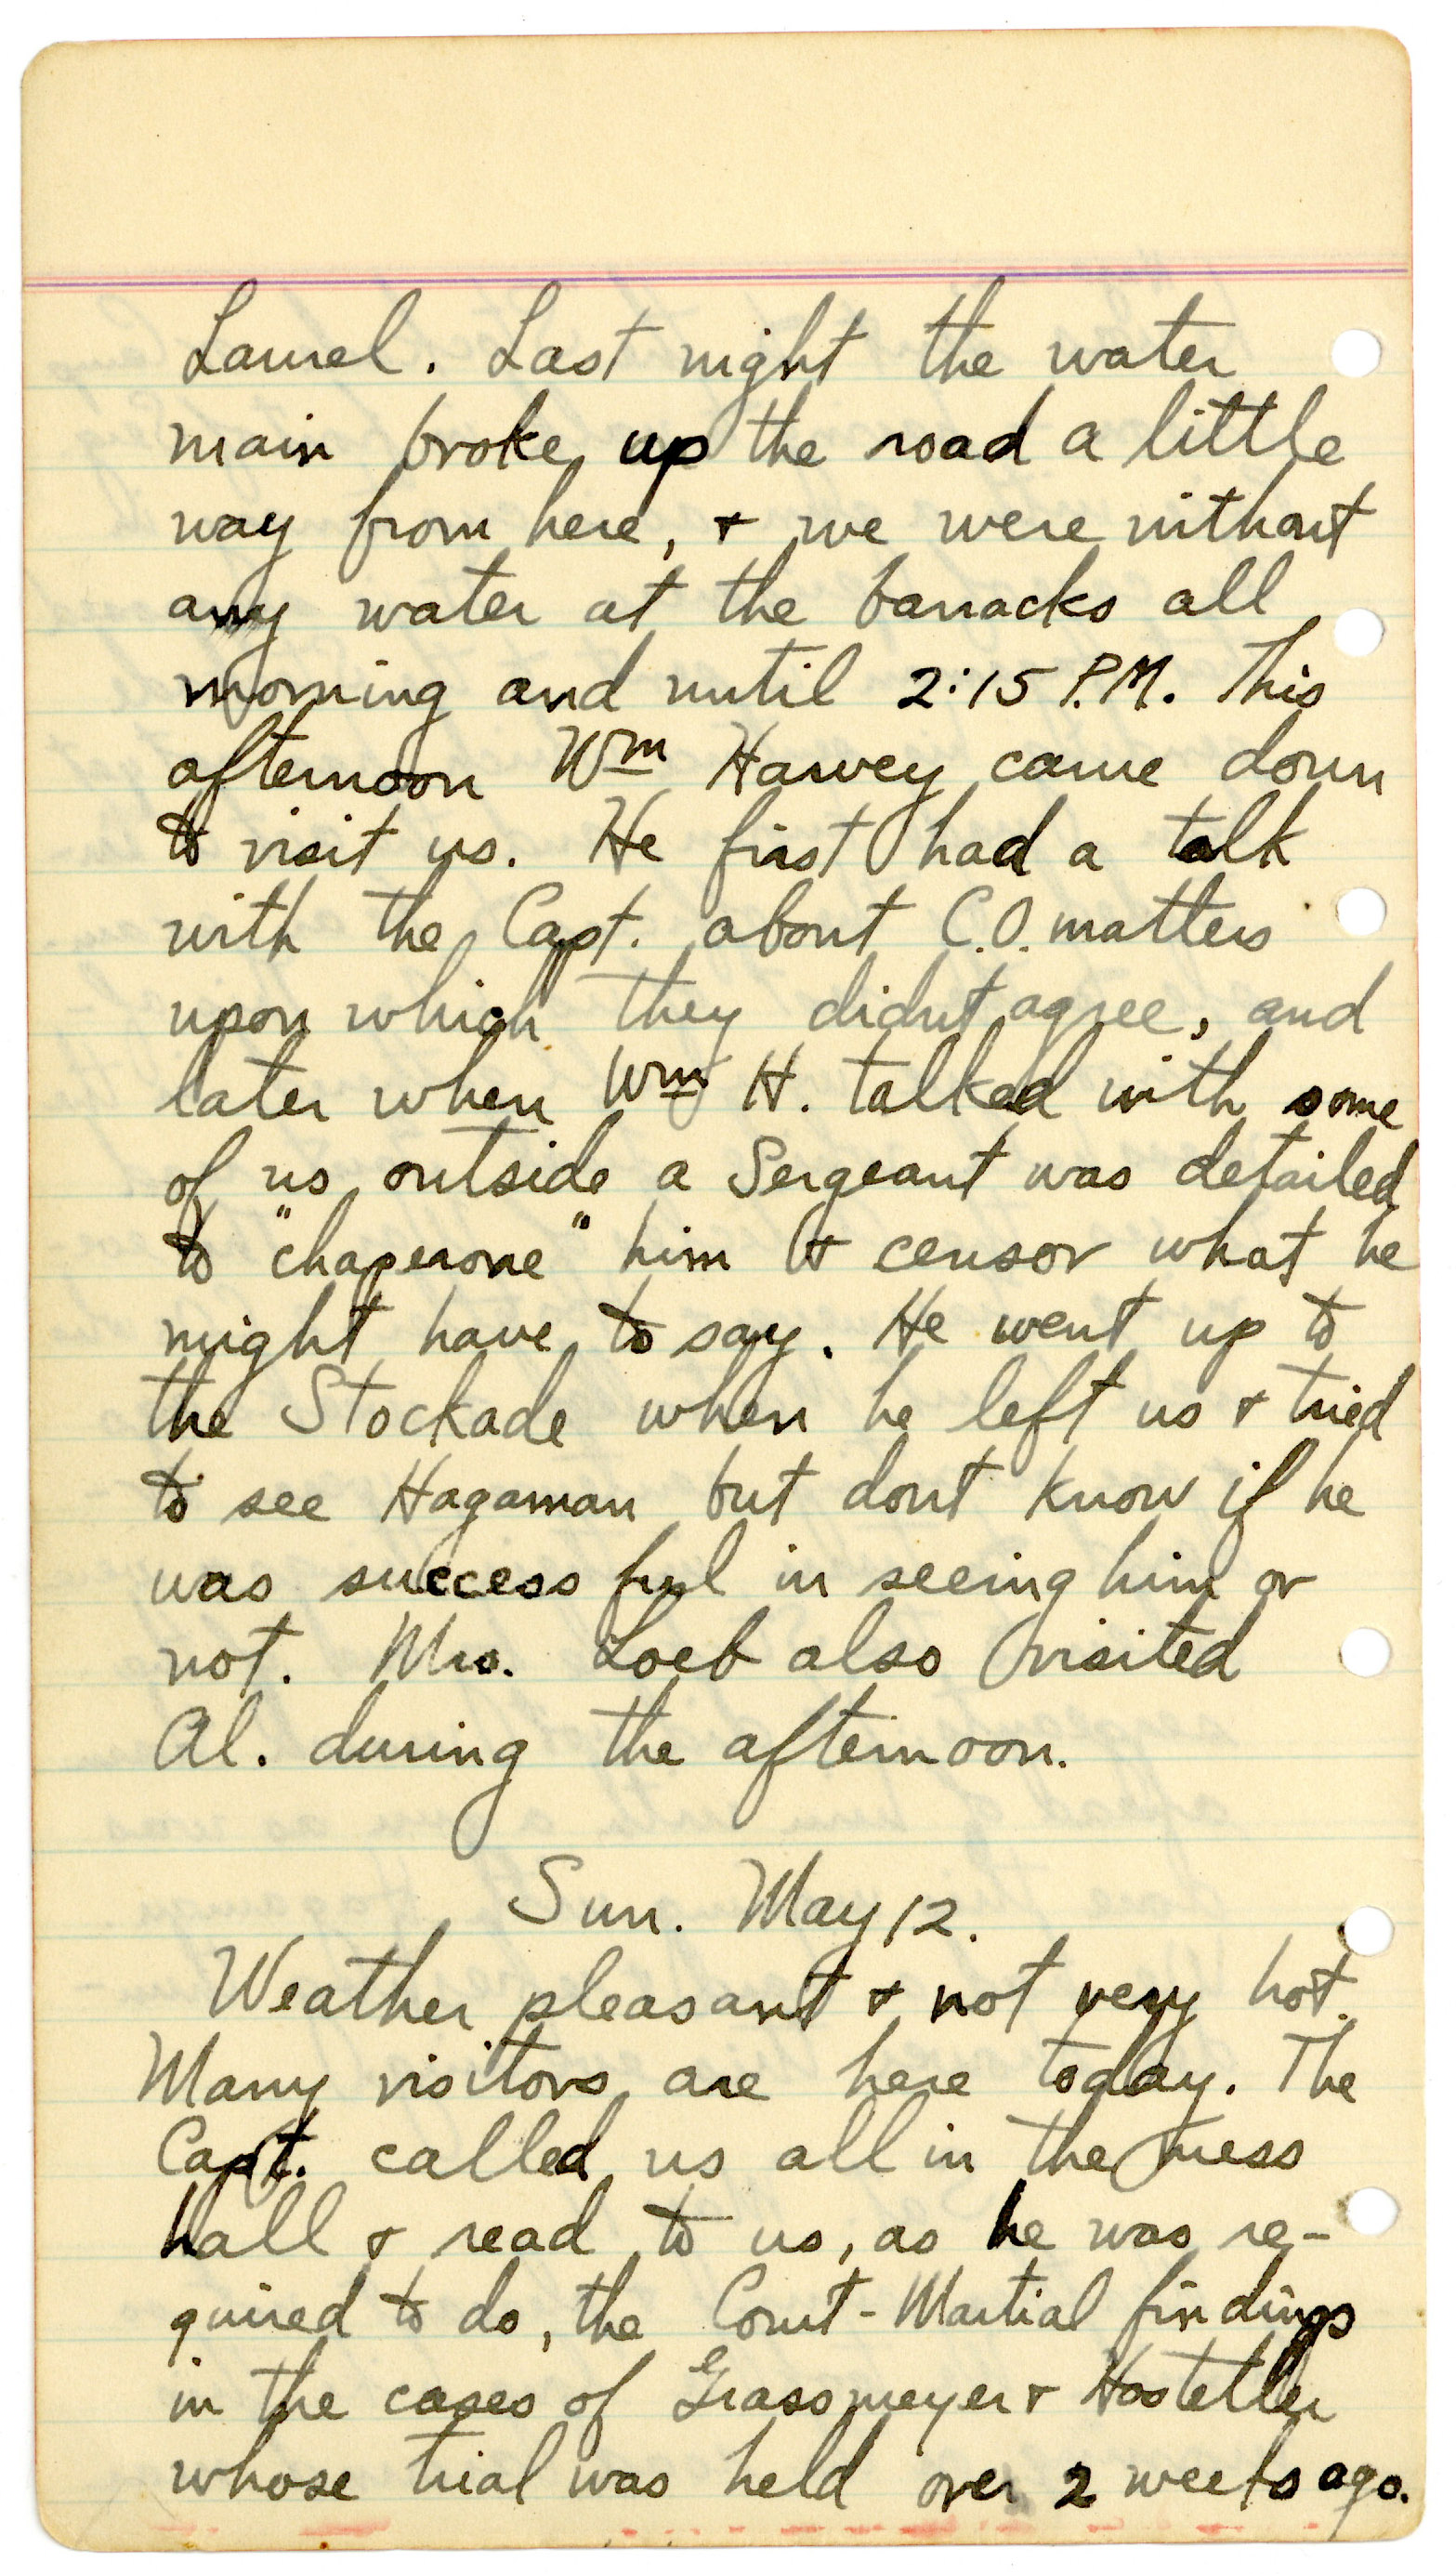 Laurel. Last night the water
main broke up the road a little
way from here, & we were without
any water at the barracks all
morning and until 2:15 P.M. This
afternoon Wm Harvey came down
to visit us. He first had a talk
with the Capt. about C.O. matters
upon which they didnt agree, and
later when Wm H. talked with some
of us outside a Sergeant was detailed
to "chaperone" him & censor what he
might have to say. He went up to
the Stockade when he left us & tried
to see Hagaman but dont know if he
was success ful in seeing him or
not. Mrs. Loeb also visited
Al. during the afternoon.
Sun. May 12.
Weather pleasant & not very hot.
Many visitors are here today. The
Capt. called us all in the mess
hall & read to us, as he was re-
quired to do, the Court-Martial findings
in the cases of Grassmeyer & Hostetler
whose trial was held over 2 weeks ago.